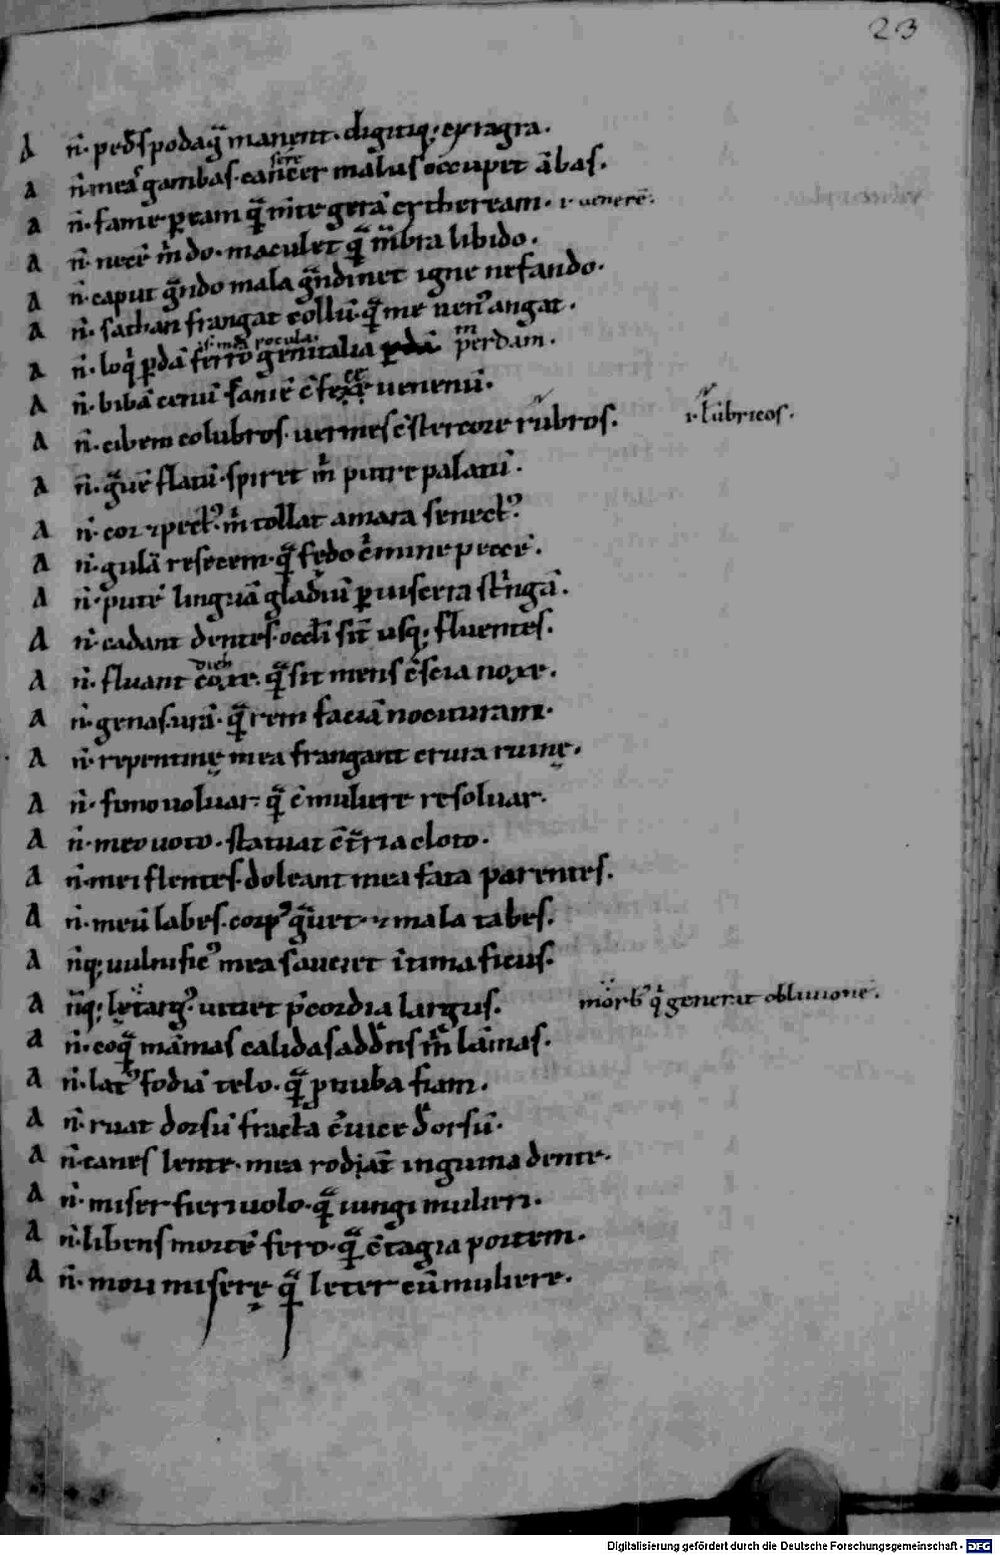 23
A n̄. pedes podagra manent. digitiq; cyragra.
A n̄. meas gambas. cancer malus occupet ābas. sere
A n̄. fame. peream q̄ mente gerā cythereā. ł uenerē.
A n̄. necē m̄ do. maculet q̄ mēbra libido.
A n̄. caput grando mala grandinet igne nefando.
A n̄. sathan frangat collū. q̄ me uen⁹ angat.
A n̄. loq̄ perdā ferro genitalia perdam.
A n̄. bibā cenū. famē c̄ fece uenenū.
A n̄. cibem colubros. uermes c̄ stercore rubros. ł lubricos.
A n̄. grauē flatū. spiret m̄ putre palatū.
A n̄. cor ⁊ pect⁹. m̄ tollat amara senect⁹
A n̄. gulā resecem. q̄ fędo c̄mine peccē.
A n̄. putē linguā gladiū p uiscera st̄ngā.
A n̄. cadant dentes. oculi sint usq; fluentes.
A n̄. fluant coxe. q̄ sit mens c̄scia noxe. dieh
A n̄. genas urā. q̄ rem faciā nocituram.
A n̄. repentinę mea frangant crura ruinę.
A n̄. fimo uoluar. q̄ c̄ muliere resoluar.
A n̄. meo uoto. statuat c̄traria cloto.
A n̄. mei flentes. doleant mea fata parentes.
A n̄. meū labes. corp⁹ grauet ⁊ mala tabes.
A n̄q; uulnific⁹ mea sauciet intima ficus.
A n̄q; lętarg⁹ uitiet p̄cordia largus. morb⁹ q̄ generat obliuionē.
A n̄. coq̄ māmas calidas addens m̄ lāmas.
A n̄. lat⁹ fodiā telo. q̄ pnuba fiam.
A n̄. ruat dorsū fracta c̄uice deorsū.
A n̄. canes lente. mea rodant inguina dente.
A n̄. miser fieri uolo. q̄ iungi mulieri.
A n̄. libens mortē fero. q̄ c̄tagia portem.
A n̄. mori miserę q̄ leter cū muliere.
Digitalisierung gefördert durch die Deutsche Forschungsgemeinschaft - DFG